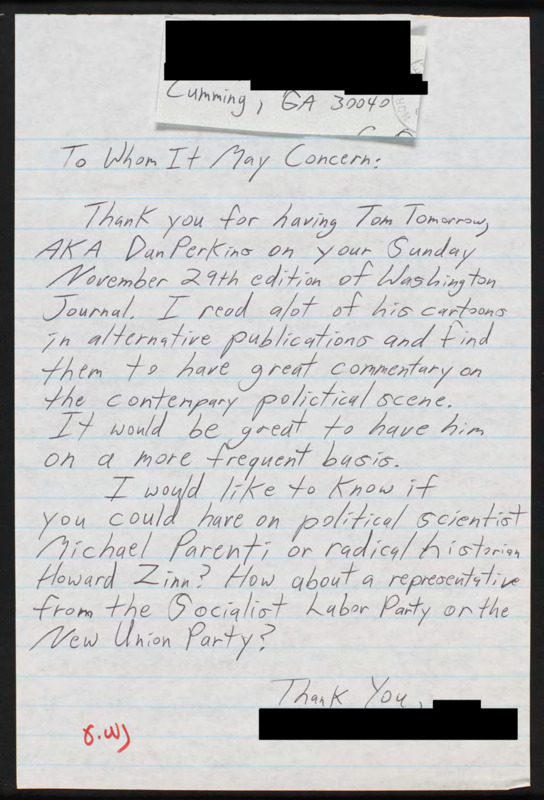 Cumming, GA 30040
To Whom It May Concern:
Thank you for having Tom Tomorrow,
AKA Dan Perkins on your Sunday
November 29th edition of Washington
Journal. I read alot of his cartoons
in alternative publications and find
them to have great commentary on
the contempary polictical scene.
It would be great to have him
on a more frequent basis.
I would like to know if
you could have on political scientist
Michael Parenti or radical historian
Howard Zinn? How about a representative
from the Socialist Labor Party or the
New Union Party?
Thank You,